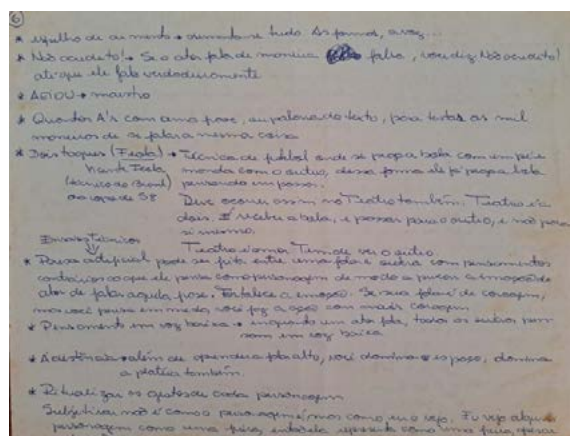 6
* espelho de aumento → aumenta-se tudo. As formas, a voz...
* Não acredito! → Se o ator fala de maneira falsa, você diz Não acredito!
até que ele fale verdadeiramente
* AEIOU → maestro
* Quantos A's com uma frase, ou palavra do texto, para testar as mil
maneiras de se falar a mesma coisa
* Dois toques (Feola) → Técnica de futebol onde se pega a bola com um pé e
Vicente Feola manda com o outro, dessa forma ele já pega a bola
(técnico do Brasil) pensando em passar.
na copa de 58 Deve ocorrer assim no Teatro também. Teatro é a
dois. É receber a bola, e passar para o outro, e não para
si mesmo.
Ensaios Técnicos Teatro é uma Tem de ver o outro.
* Pausa artificial pode ser feita entre uma fala e outra com pensamentos
contrários ao que ele pensa como personagem de modo a a emoção do
ator de falar aquela frase. Fortalece a emoção. Se sua fala é de coragem,
mas você pensa em medo, você faz a ação com mais coragem
* Pensamento em voz baixa → enquanto um ator fala, todos os outros pen
sam em voz baixa
* À distância → além de aprender a falar alto, você domina o espaço, domina
a platéia também.
* Ritualizar os gestos de cada personagem
Subjetivar não é como o personagem é, mas como eu o vejo. Eu vejo algum
personagem como uma fera, então ele como uma fera,